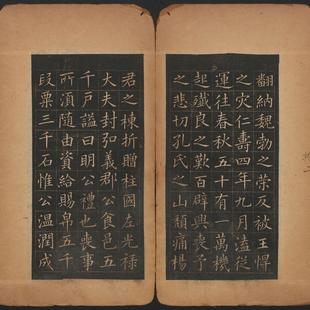 翻納魏勃之榮反被王悍
之灾仁壽四年九月溘從
運往春秋五十有一萬機
起殲良之歎百辟興喪予
之悲切孔氏之山頹痛楊
君之棟折贈柱國左光祿
大夫封弘義郡公食邑五
千戶諡曰明公禮也喪事
所須随由資給賜帛五千
段粟三千石惟公温潤成